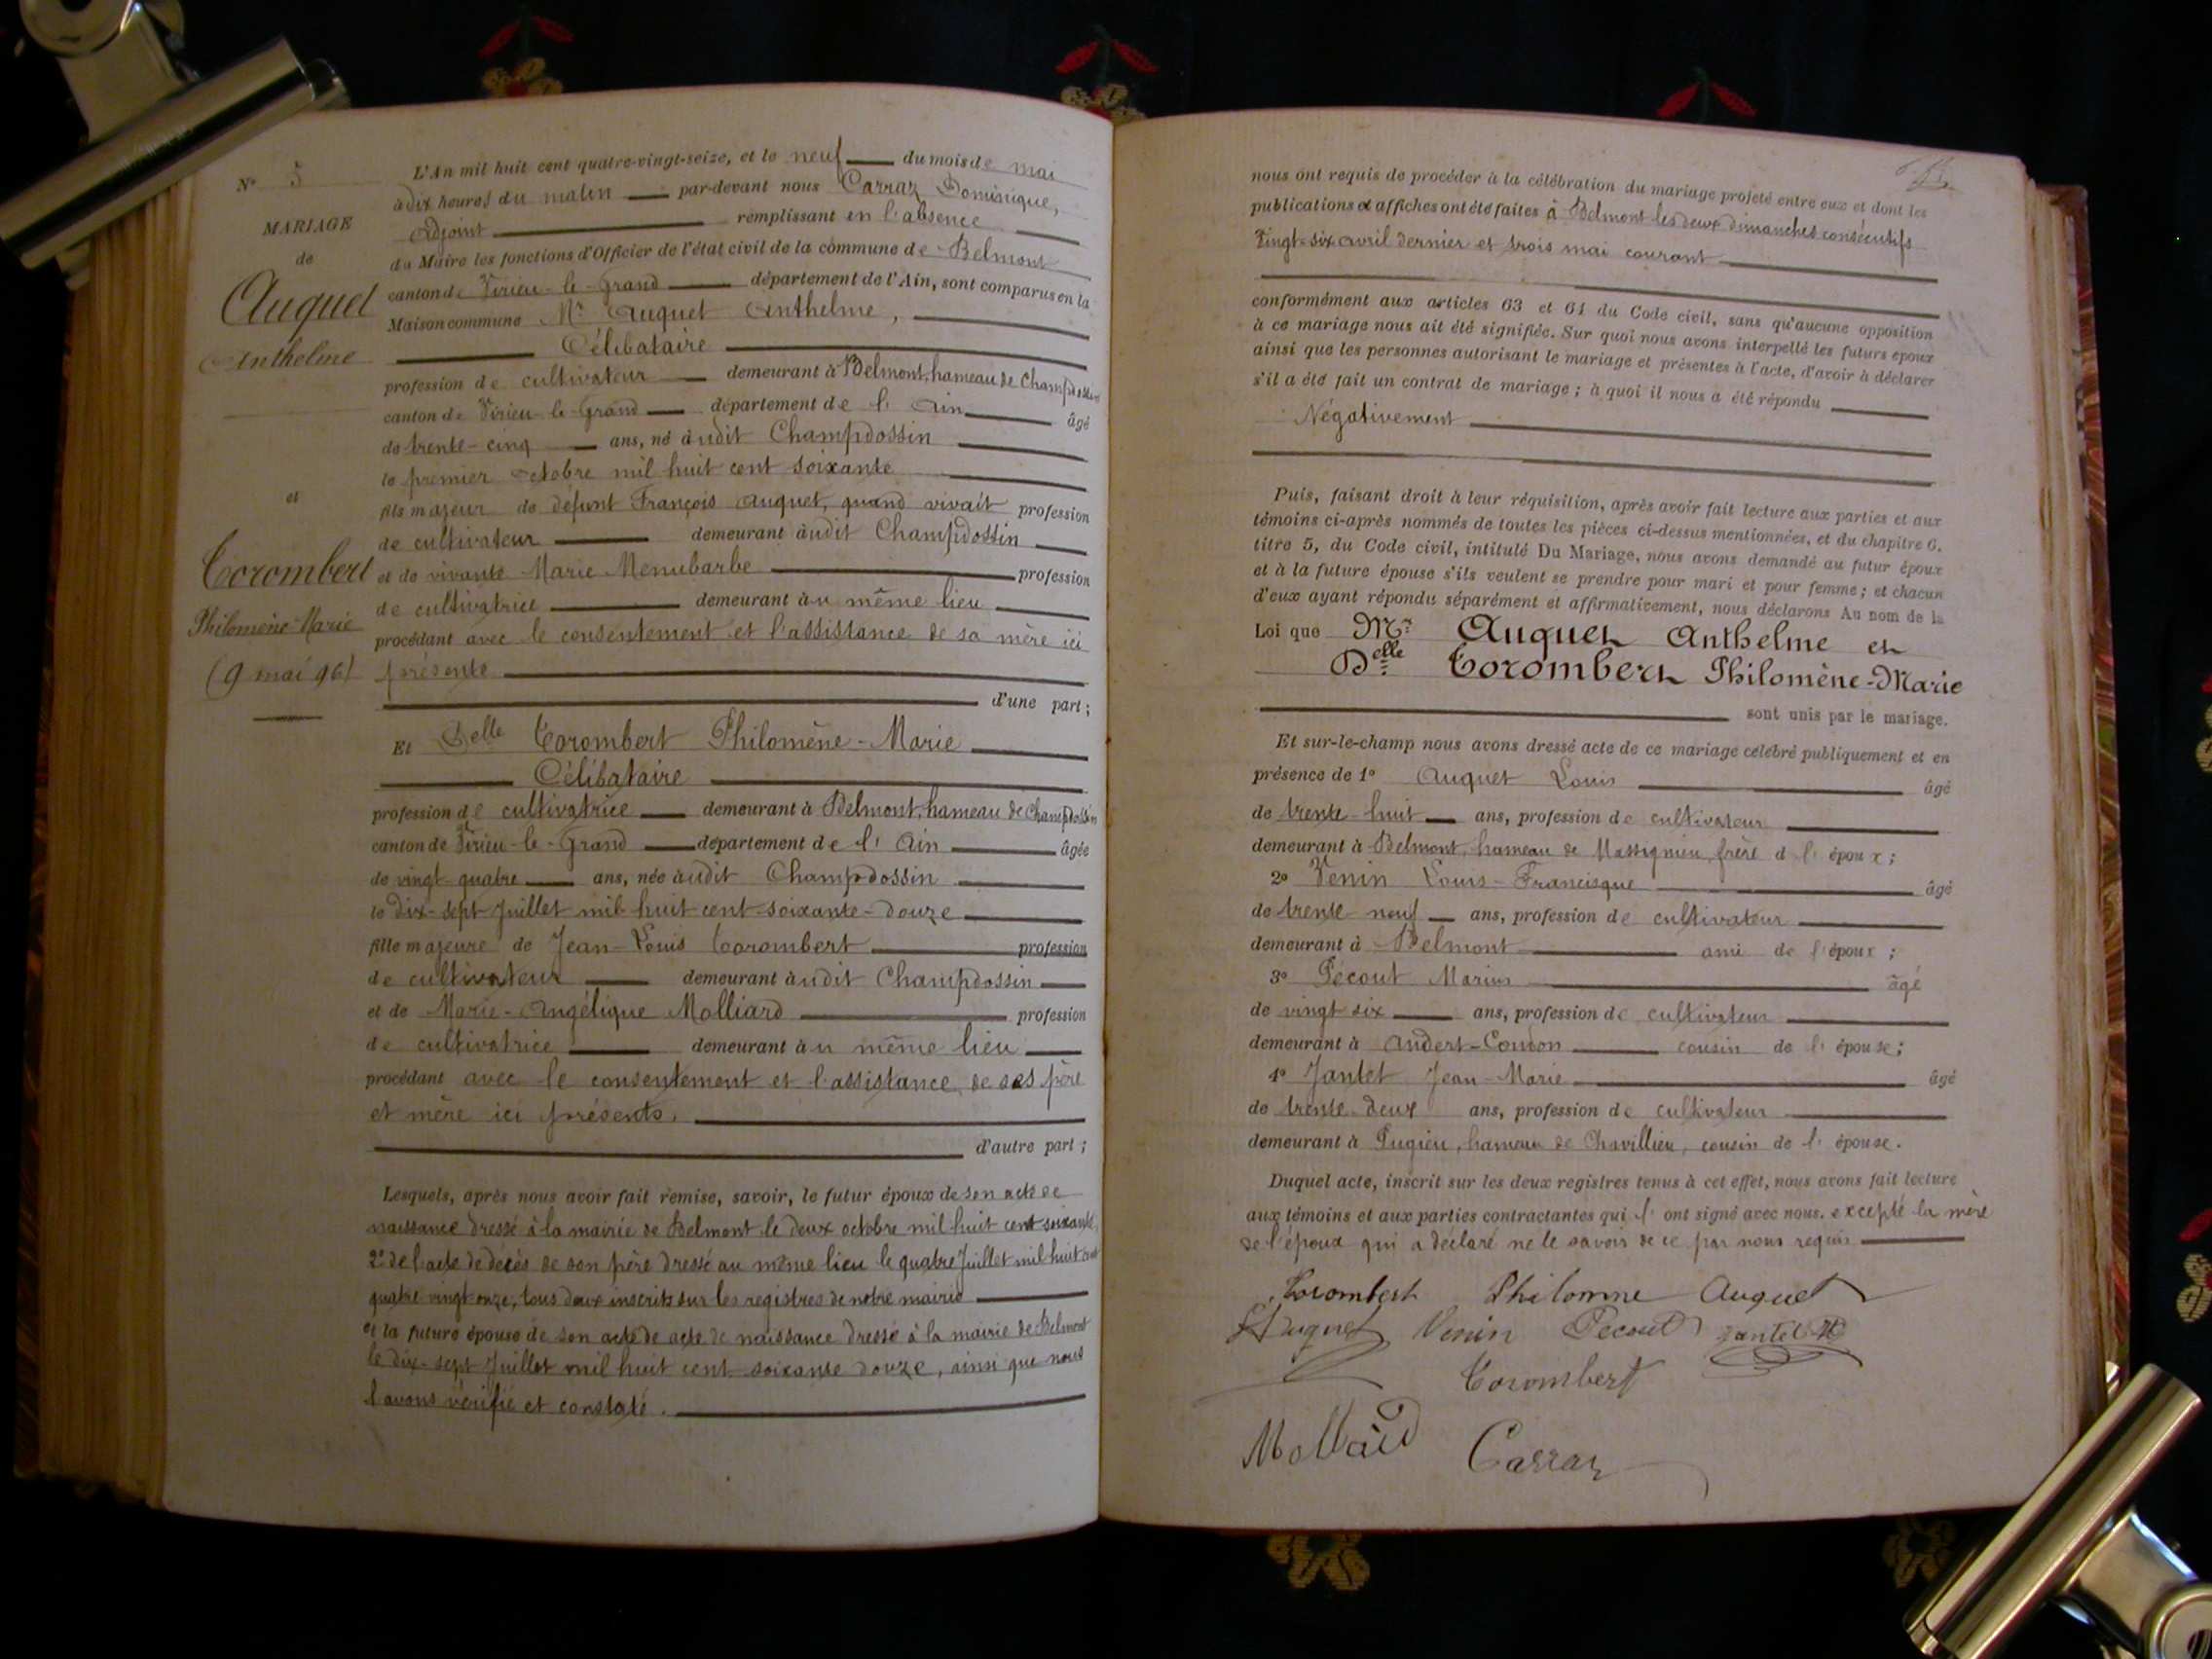 N° 5
MARIAGE
de
Auguet
Anthelme
et
Corombert
Philomène-Marie
(9 mai 96)
L'An mil huit cent quatre-vingt-seize, et le neuf du mois de mai
à dix heures du matin par-devant nous Carraz Dominique,
Adjoint remplissant en l'absence
du Maire les fonctions d'Officier de l'état civil de la commune de Belmont
canton de Virieu-le-Grand département de l'Ain, sont comparus en la
Maison commune Mr Auguet Anthelme,
Célibataire
profession de cultivateur demeurant à Belmont, hameau de Champdossin
canton de Virieu-le-Grand département de l'Ain âgé
de trente-cinq ans, né àudit Champdossin
le premier octobre mil huit cent soixante
fils majeur de défunt François Auguet, quand vivait profession
de cultivateur demeurant àudit Champdossin
et de vivante Marie Menubarbe profession
de cultivatrice demeurant àu même lieu
procédant avec le consentement et l'assistance de sa mère ici
présente
d'une part;
Et Delle Corombert Philomène-Marie
Célibataire
profession de cultivatrice demeurant à Belmont, hameau de Champdossin
canton de Virieu-le-Grand département de l'Ain âgée
de vingt-quatre ans, née àudit Champdossin
le dix-sept Juillet mil huit cent soixante-douze
fille majeure de Jean-Louis Corombert profession
de cultivateur demeurant àudit Champdossin
et de Marie-Angélique Molliard profession
de cultivatrice demeurant àu même lieu
procédant avec le consentement et l'assistance de ses père
et mère ici présents.
d'autre part;
Lesquels, après nous avoir fait remise, savoir, le futur époux de son acte de
naissance dressé à la mairie de Belmont le deux octobre mil huit cent soixante,
2° de l'acte de décès de son père dressé au même lieu le quatre Juillet mil huit cent
quatre vingt onze, tous deux inscrits sur les registres de notre mairie
et la future épouse de son acte de acte de naissance dressé à la mairie de Belmont
le dix-sept Juillet mil huit cent soixante douze, ainsi que nous
l'avons vérifié et constaté.
nous ont requis de procéder à la célébration du mariage projeté entre eux et dont les
publications et affiches ont été faites à Belmont les deux dimanches consécutifs
vingt-six avril dernier et trois mai courant
conformément aux articles 63 et 64 du Code civil, sans qu'aucune opposition
à ce mariage nous ait été signifiée. Sur quoi nous avons interpellé les futurs époux
ainsi que les personnes autorisant le mariage et présentes à l'acte, d'avoir à déclarer
s'il a été fait un contrat de mariage; à quoi il nous a été répondu
Négativement
Puis, faisant droit à leur réquisition, après avoir fait lecture aux parties et aux
témoins ci-après nommés de toutes les pièces ci-dessus mentionnées, et du chapitre 6.
titre 5, du Code civil, intitulé Du Mariage, nous avons demandé au futur époux
et à la future épouse s'ils veulent se prendre pour mari et pour femme; et chacun
d'eux ayant répondu séparément et affirmativement, nous déclarons Au nom de la
Loi que Mr Auguet Anthelme et
Delle Corombert Philomène-Marie
sont unis par le mariage.
Et sur-le-champ nous avons dressé acte de ce mariage célébré publiquement et en
présence de 1° Auguet Louis âgé
de trente-huit ans, profession de cultivateur
demeurant à Belmont, hameau de Massignieu, frère de l'époux;
2° Venin Louis-Francisque âgé
de trente neuf ans, profession de cultivateur
demeurant à Belmont ami de l'époux;
3° Pécout Marius âgé
de vingt six ans, profession de cultivateur
demeurant à Andert-Condon cousin de l'épouse;
4° Jantet Jean-Marie âgé
de trente-deux ans, profession de cultivateur
demeurant à Pugieu, hameau de Chavillieu, cousin de l'épouse.
Duquel acte, inscrit sur les deux registres tenus à cet effet, nous avons fait lecture
aux témoins et aux parties contractantes qui l'ont signé avec nous. excepté la mère
de l'époux qui a déclaré ne le savoir de ce par nous requis
Corombert Philomne Auguet
Auguet Venin Pecout Jantet
Corombert
Molliard Carraz